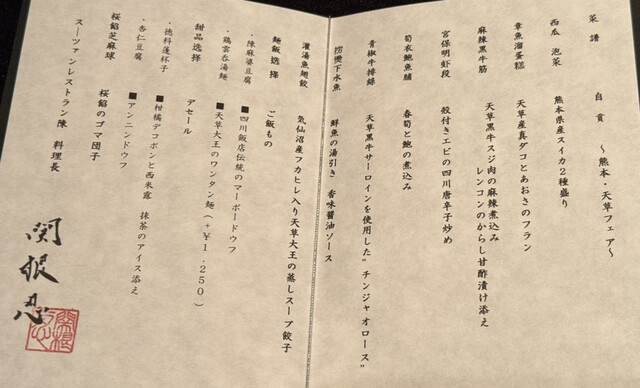 菜譜
自貢 〜熊本・天草フェア〜
西瓜泡菜
熊本県産スイカ2種盛り
章魚溜蛋糕
天草産真ダコとあおさのフラン
麻辣黒牛筋
天草黒牛スジ肉の麻辣煮込み
レンコンのからし甘酢漬け添え
宮保明虾段
殻付きエビの四川唐辛子炒め
筍衣鮑魚脯
春筍と鮑の煮込み
青椒牛排線
天草黒牛サーロインを使用した"チンジャオロース"
捞拶下水魚
鮮魚の湯引き 香味醤油ソース
灌湯魚翅餃
気仙沼産フカヒレ入り天草大王の蒸しスープ餃子
麺飯選择
ご飯もの
・陳麻婆豆腐
■四川飯店伝統のマーボードウフ
・鶏雲呑湯麺
■天草大王のワンタン麺(+¥1,250)
甜品選择
デセール
・徳科蓬杯子
■柑橘デコポンと西米露 抹茶のアイス添え
・杏仁豆腐
■アンニンドウフ
桜餡芝麻球
桜餡のゴマ団子
スーツァンレストラン陳 料理長
関根忍